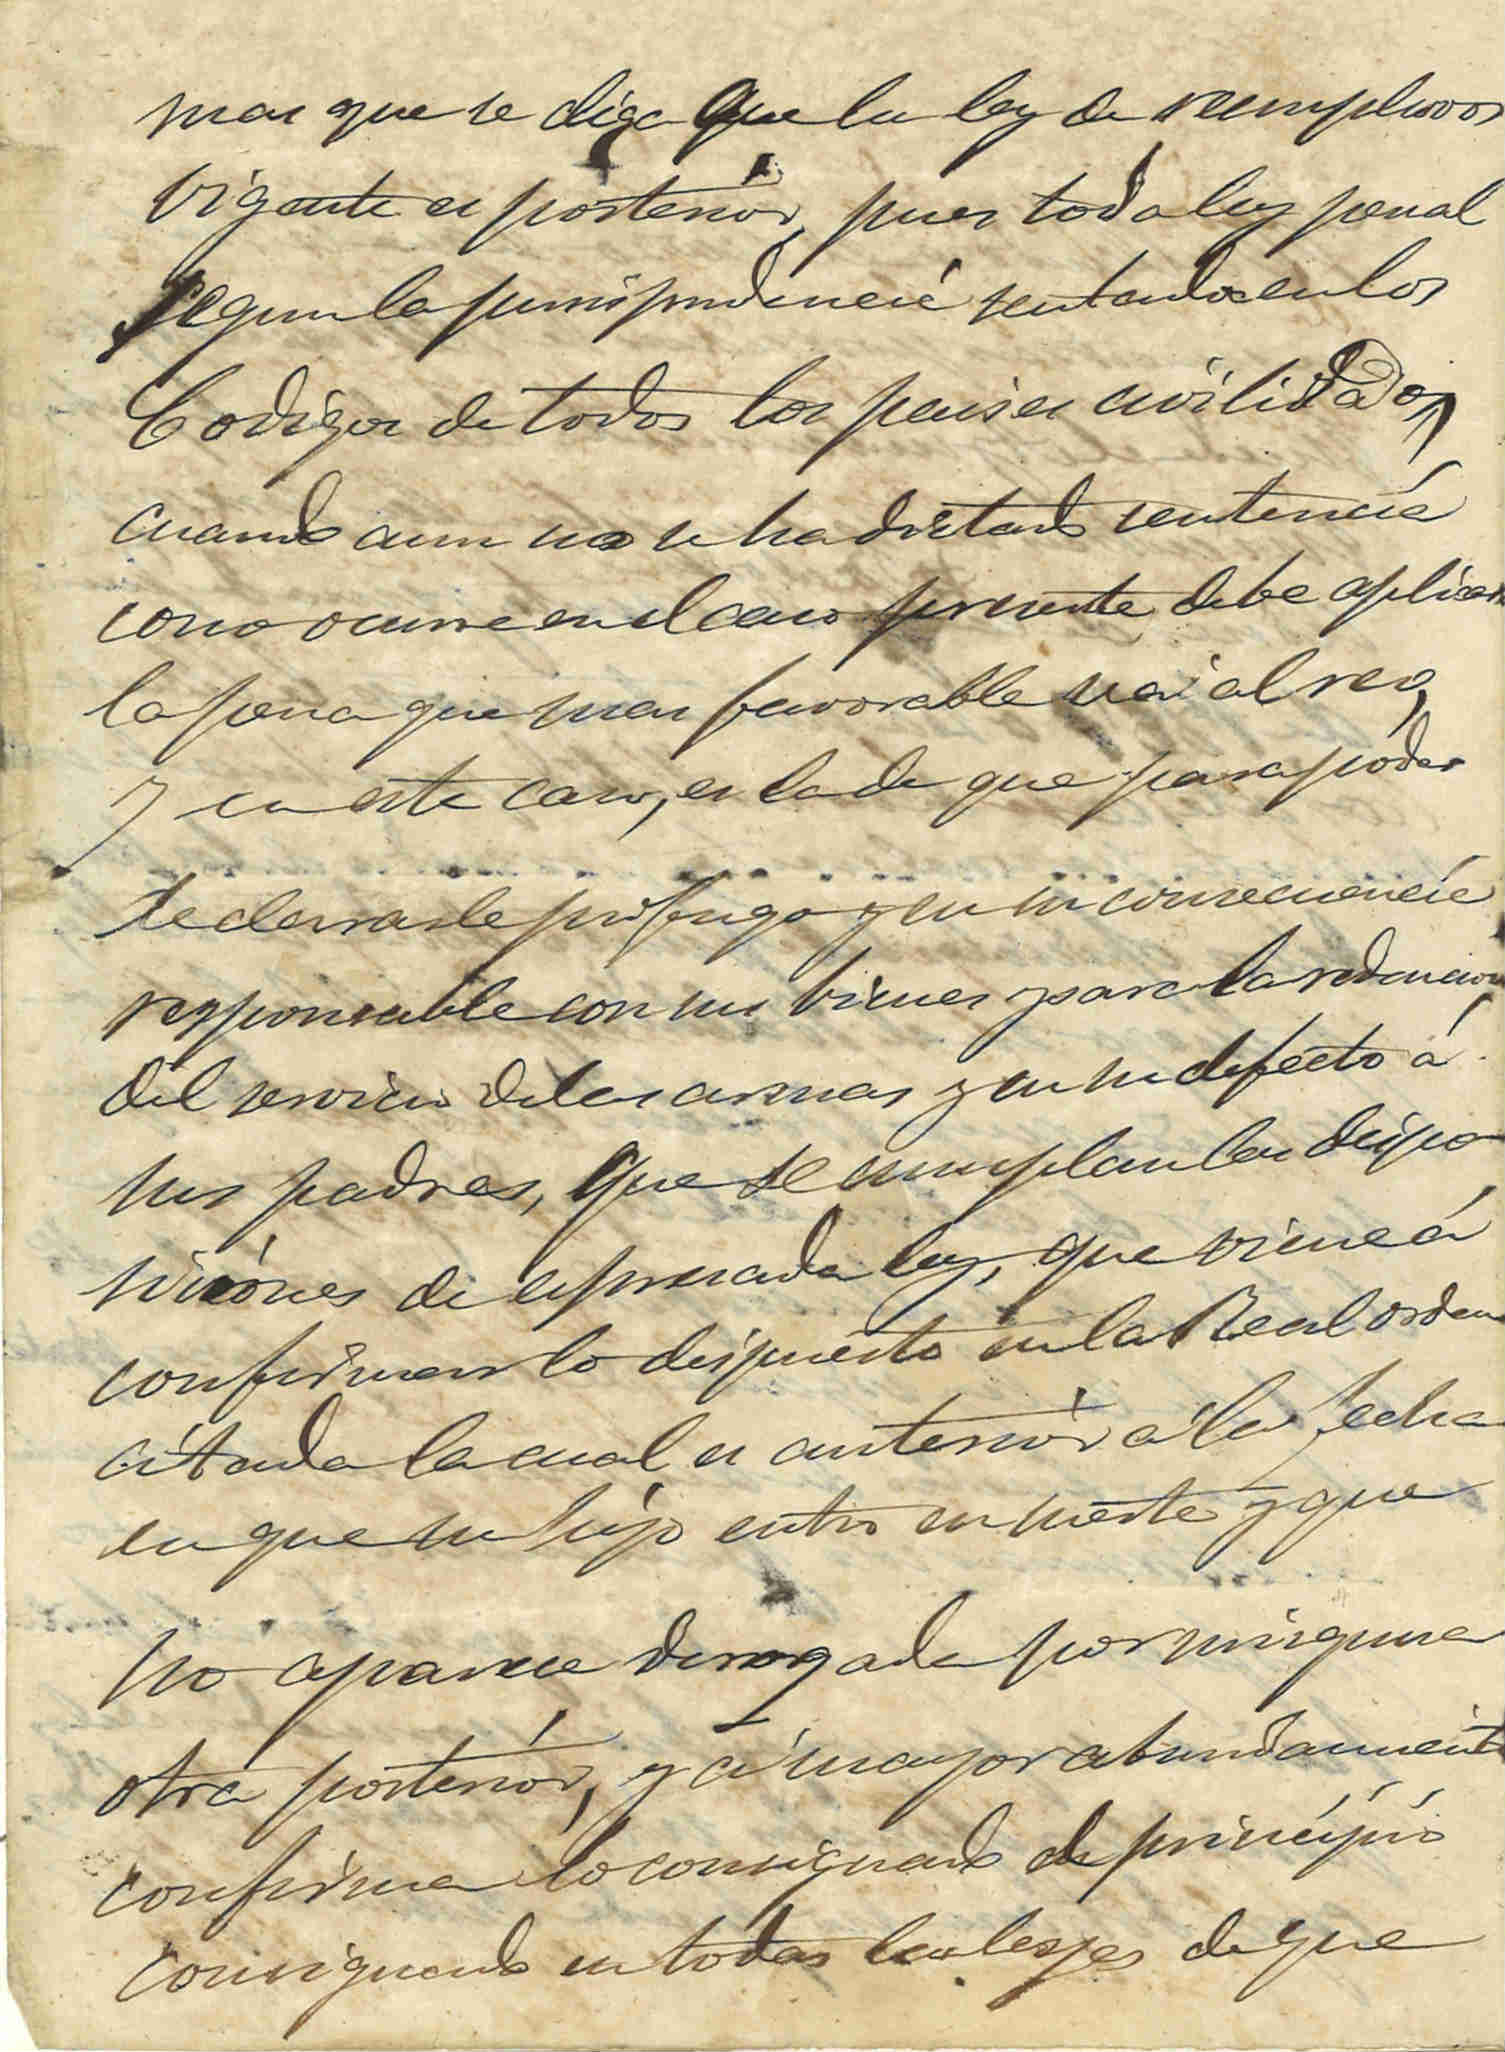 mas que se diga que la ley de reemplazos
vigente es posterior, pues toda ley penal
segun la jurisprudencia sentada en los
Codigos de todos los paises civilizados,
cuando aun no se ha dictado sentencia
como ocurre en el caso presente debe aplicar
la pena que mas favorable sea al reo,
y en este caso, es la de que para poder
declararle profugo y en su consecuencia
responsable con sus bienes para la redencion
del servicio de las armas y en su defecto á
sus padres, que se cumplan las dispo
siciones de espresada ley, que viene á
confirmar lo dispuesto en la Real orden
citada la cual es anterior á la fecha
en que su hijo entró en suerte y que
no aparece derogada por ninguna
otra posterior, y á mayor abundamiento
confirma lo consignado de principio
consignado en todas las leyes de que